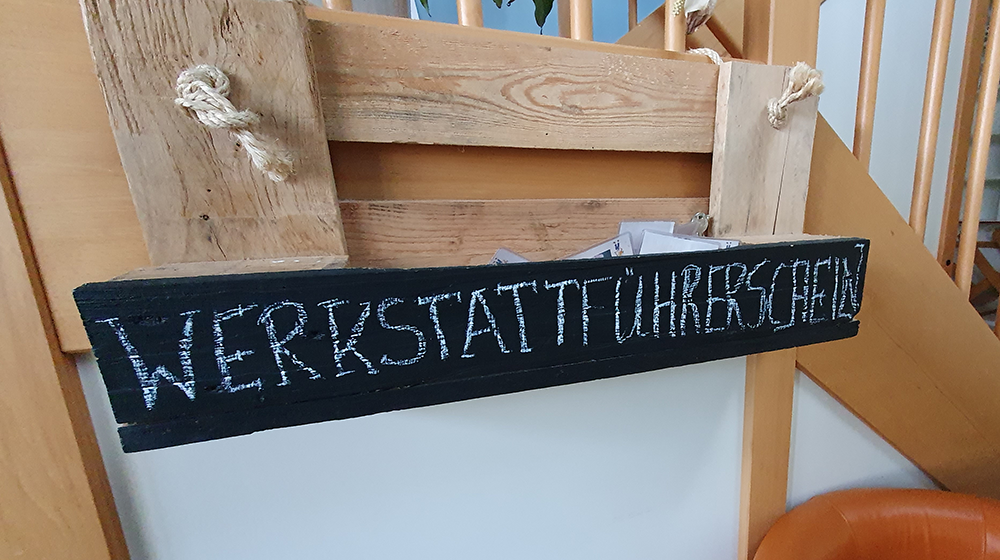 WERKSTATTFÜHRERSCHEIN